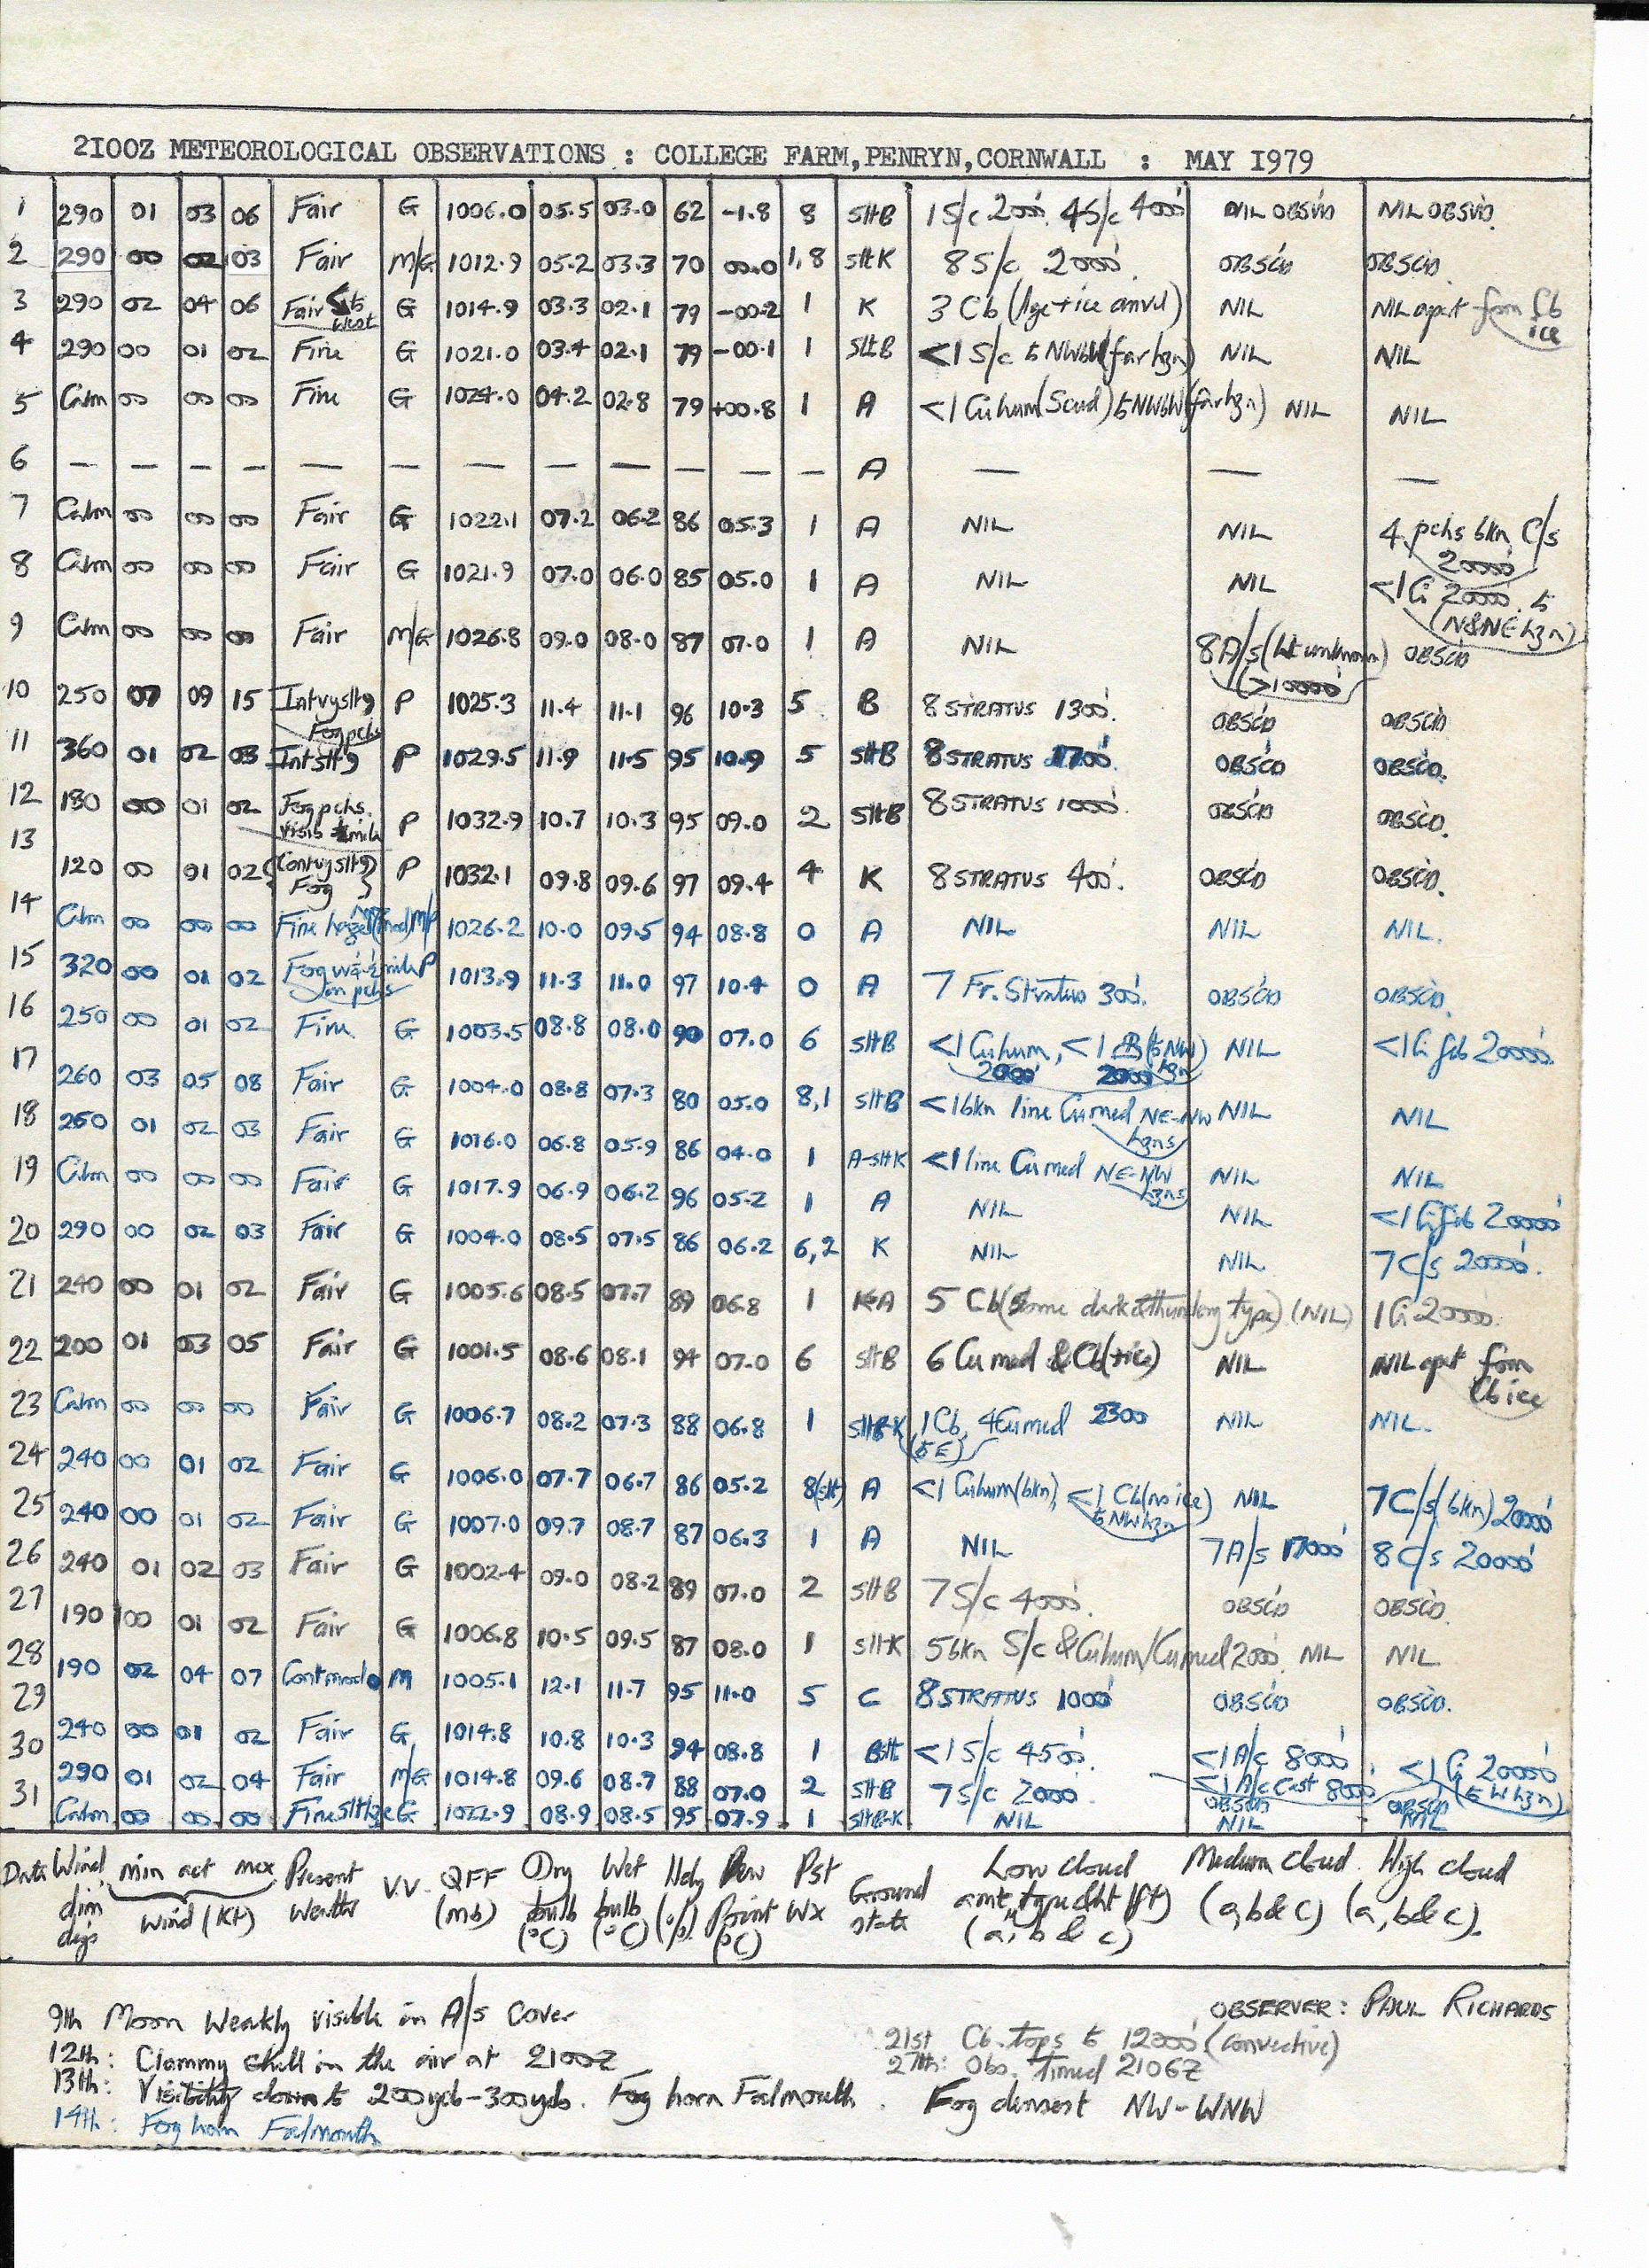 2I00Z METEOROLOGICAL OBSERVATIONS : COLLEGE FARM,PENRYN,CORNWALL : MAY I979
1 290 01 03 06 Fair G 1006.0 05.5 03.0 62 -1.8 8 SltB 1 S/c 2000' 4S/c 4000' NIL OBSVD NIL OBSVD.
2 290 00 02 03 Fair M/G 1012.9 05.2 03.3 70 00.0 1,8 SltK 8 S/c 2000'. OBSC'D OBSC'D.
3 290 02 04 06 Fair to West G 1014.9 03.3 02.1 79 -00.2 1 K 3 Cb (lge+ice anvil) NIL NIL apart from Cb ice
4 290 00 01 02 Fine G 1021.0 03.4 02.1 79 -00.1 1 SltB <1 S/c to NWbW (far hzn) NIL NIL
5 Calm 00 00 00 Fine G 1024.0 04.2 02.8 79 +00.8 1 A <1 Cuhum (Scud) to NWbW (far hzn) NIL NIL
6 — — — — — — — — — — — — A — — —
7 Calm 00 00 00 Fair G 1022.1 07.2 06.2 86 05.3 1 A NIL NIL 4 pchs bkn C/s 20000'
8 Calm 00 00 00 Fair G 1021.9 07.0 06.0 85 05.0 1 A NIL NIL <1 Ci 20000'. to (N&NE hzn)
9 Calm 00 00 00 Fair M/G 1026.8 09.0 08.0 87 07.0 1 A NIL 8 A/s (ht unknown) (>10000') OBSC'D
10 250 07 09 15 Intvyslt Fogpchs P 1025.3 11.4 11.1 96 10.3 5 B 8 STRATUS 1300'. OBSC'D OBSC'D.
11 360 01 02 03 Intslt P 1029.5 11.9 11.5 95 10.9 5 SltB 8 STRATUS 1700'. OBSC'D OBSC'D.
12 180 00 01 02 Fogpchs. Visib mile P 1032.9 10.7 10.3 95 09.0 2 SltB 8 STRATUS 1000'. OBSC'D OBSC'D.
13 120 00 01 02 (Contvyslt) Fog P 1032.1 09.8 09.6 97 09.4 4 K 8 STRATUS 400'. OBSC'D OBSC'D.
14 Calm 00 00 00 Fine M/P 1026.2 10.0 09.5 94 08.8 0 A NIL NIL NIL.
15 320 00 01 02 Fog mile in pchs P 1013.9 11.3 11.0 97 10.4 0 A 7 Fr. Stratus 300'. OBSC'D OBSC'D.
16 250 00 01 02 Fine G 1003.5 08.8 08.0 90 07.0 6 SltB <1 Cuhum, <1 (to NW hzn) 2000' 2000' NIL <1 Ci fib 20000'.
17 260 03 05 08 Fair G 1004.0 08.8 07.3 80 05.0 8,1 SltB <1 bkn line Cumed NE-NW hzns NIL NIL
18 260 01 02 03 Fair G 1016.0 06.8 05.9 86 04.0 1 A-sltK <1 line Cumed NE-NW hzns NIL NIL
19 Calm 00 00 00 Fair G 1017.9 06.9 06.2 96 05.2 1 A NIL NIL <1 Ci fib 20000'
20 290 00 02 03 Fair G 1004.0 08.5 07.5 86 06.2 6,2 K NIL NIL 7 C/s 20000'.
21 240 00 01 02 Fair G 1005.6 08.5 07.7 89 06.8 1 KA 5 Cb (some dark & thundery type) (NIL) 1 Ci 20000'.
22 200 01 03 05 Fair G 1001.5 08.6 08.1 94 07.0 6 SltB 6 Cu med & Cb (+ice) NIL NIL apart from Cb ice
23 Calm 00 00 00 Fair G 1006.7 08.2 07.3 88 06.8 1 SltB-K 1 Cb, 4 Cumed 2300' (to E) NIL NIL.
24 240 00 01 02 Fair G 1006.0 07.7 06.7 86 05.2 8(slt) A <1 Cuhum (bkn), <1 Cb (no ice) to NW hzn NIL 7 C/s (bkn) 20000'
25 240 00 01 02 Fair G 1007.0 09.7 08.7 87 06.3 1 A NIL 7 A/s 17000' 8 C/s 20000'
26 240 01 02 03 Fair G 1002.4 09.0 08.2 89 07.0 2 SltB 7 S/c 4000'. OBSC'D OBSC'D.
27 190 00 01 02 Fair G 1006.8 10.5 09.5 87 08.0 1 SltK 5 bkn S/c & Cuhum/Cumed 2000'. NIL NIL
28 190 02 04 07 Contmod M 1005.1 12.1 11.7 95 11.0 5 C 8 STRATUS 1000' OBSC'D OBSC'D.
29 240 00 01 02 Fair G 1014.8 10.8 10.3 94 08.8 1 BSlt <1 S/c 4500'. <1 A/c 8000' <1 A/c Cast 8000' <1 Ci 20000' (to W hzn)
30 290 01 02 04 Fair M/G 1014.8 09.6 08.7 88 07.0 2 SltB 7 S/c 2000'. OBSC'D OBSC'D
31 Calm 00 00 00 Fineslthze G 1022.9 08.9 08.5 95 07.9 1 SltB-K NIL NIL NIL
Date Wind dirn digs min act max Wind (Kt) Present weather V.V. QFF (mb) Dry bulb (°C) Wet bulb (°C) Hdy (%) Dew Point (°C) Pst Wx Ground state Low cloud amt, type & ht (ft) (a, b & c) Medium cloud (a, b & c) High cloud (a, b & c).
9th Moon Weakly visible in A/s Cover
OBSERVER: PAUL RICHARDS
12th: Clammy chill in the air at 2100Z
21st Cb. tops to 12000' (convective)
27th: Obs. timed 2106Z
13th: Visibility down to 200yds-300yds. Fog horn Falmouth. Fog densest NW-WNW
14th: Fog horn Falmouth